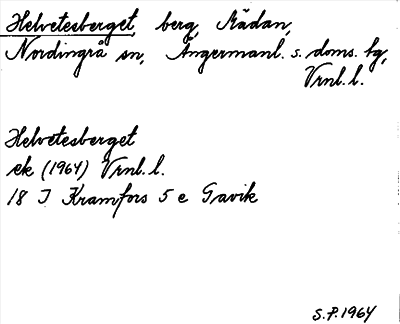 Helvetesberget, berg, Rädan,
Nordingrå sn, Ångermanl. s. doms. tg,
Vrnl. l.
Helvetesberget
ek (1964) Vrnl. l.
18 I Kramfors 5 e Gavik
S.P. 1964